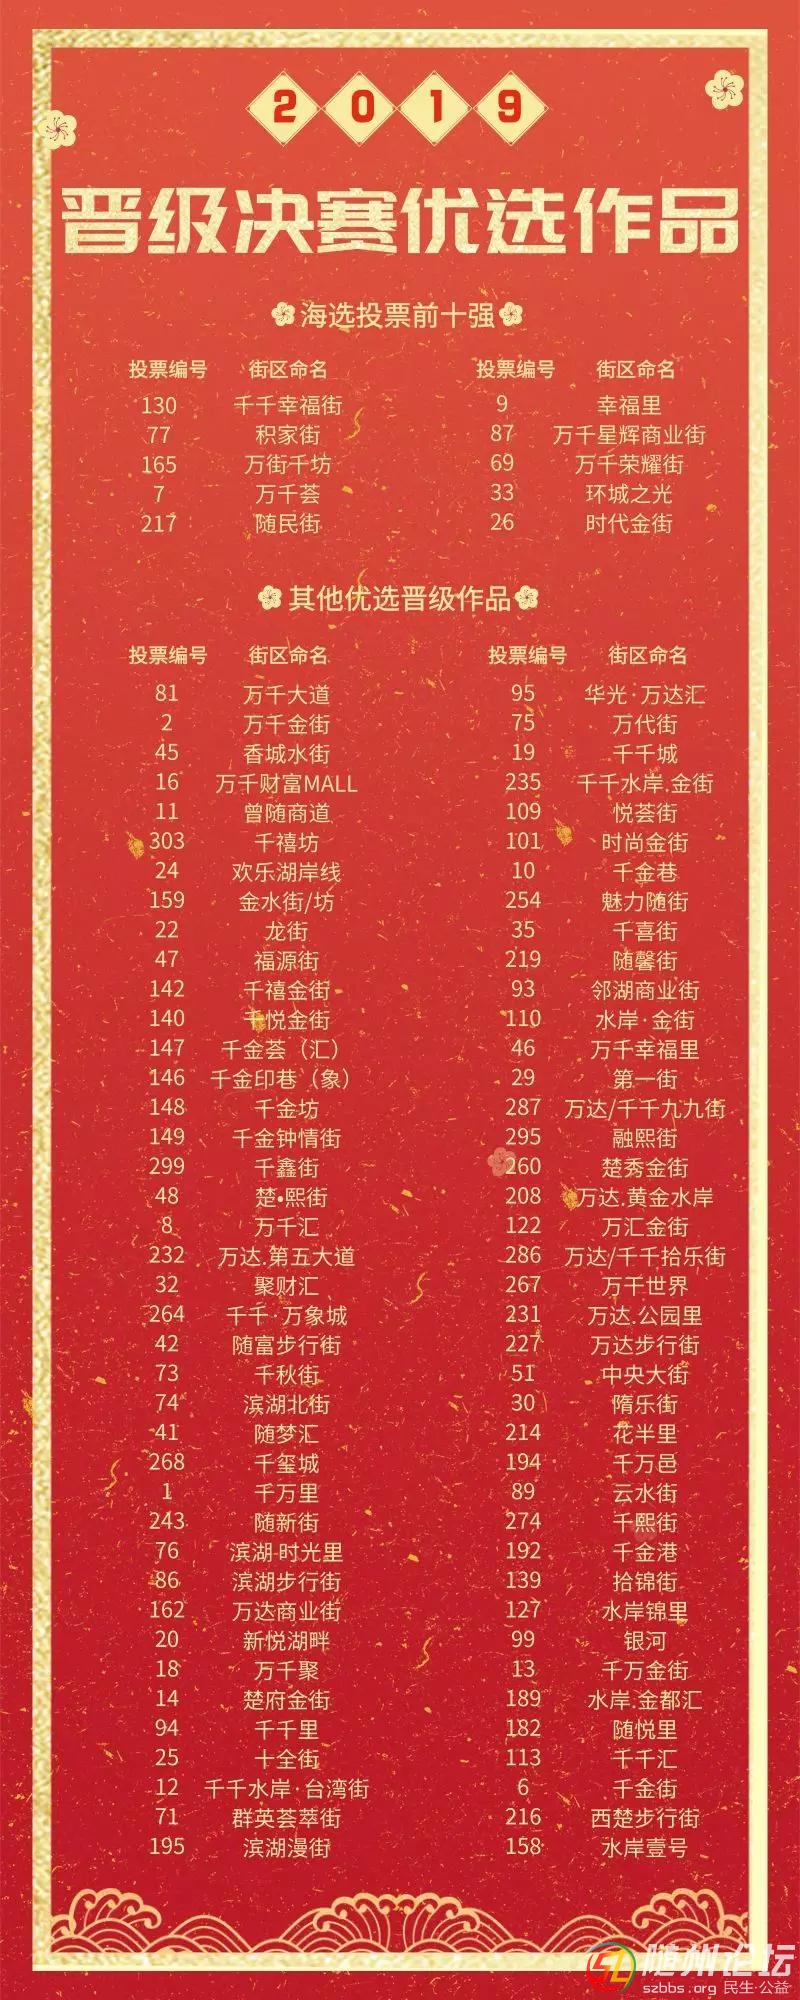 2019
晋级决赛优选作品
海选投票前十强
投票编号 街区命名 投票编号 街区命名
130 千千幸福街 9 幸福里
77 积家街 87 万千星辉商业街
165 万街千坊 69 万千荣耀街
7 万千荟 33 环城之光
217 随民街 26 时代金街
其他优选晋级作品
投票编号 街区命名 投票编号 街区命名
81 万千大道 95 华光·万达汇
2 万千金街 75 万代街
45 香城水街 19 千千城
16 万千财富MALL 235 千千水岸.金街
11 曾随商道 109 悦荟街
303 千禧坊 101 时尚金街
24 欢乐湖岸线 10 千金巷
159 金水街/坊 254 魅力随街
22 龙街 35 千喜街
47 福源街 219 随馨街
142 千禧金街 93 邻湖商业街
140 千悦金街 110 水岸·金街
147 千金荟（汇） 46 万千幸福里
146 千金印巷（象） 29 第一街
148 千金坊 287 万达/千千九九街
149 千金钟情街 295 融熙街
299 千鑫街 260 楚秀金街
48 楚•熙街 208 万达.黄金水岸
8 万千汇 122 万汇金街
232 万达.第五大道 286 万达/千千拾乐街
32 聚财汇 267 万千世界
264 千千·万象城 231 万达.公园里
42 随富步行街 227 万达步行街
73 千秋街 51 中央大街
74 滨湖北街 30 隋乐街
41 随梦汇 214 花半里
268 千玺城 194 千万邑
1 千万里 89 云水街
243 随新街 274 千熙街
76 滨湖·时光里 192 千金港
86 滨湖步行街 139 拾锦街
162 万达商业街 127 水岸锦里
20 新悦湖畔 99 银河
18 万千聚 13 千万金街
14 楚府金街 189 水岸.金都汇
94 千千里 182 随悦里
25 十全街 113 千千汇
12 千千水岸·台湾街 6 千金街
71 群英荟萃街 216 西楚步行街
195 滨湖漫街 158 水岸壹号
随州论坛
szbbs.org 民生·公益